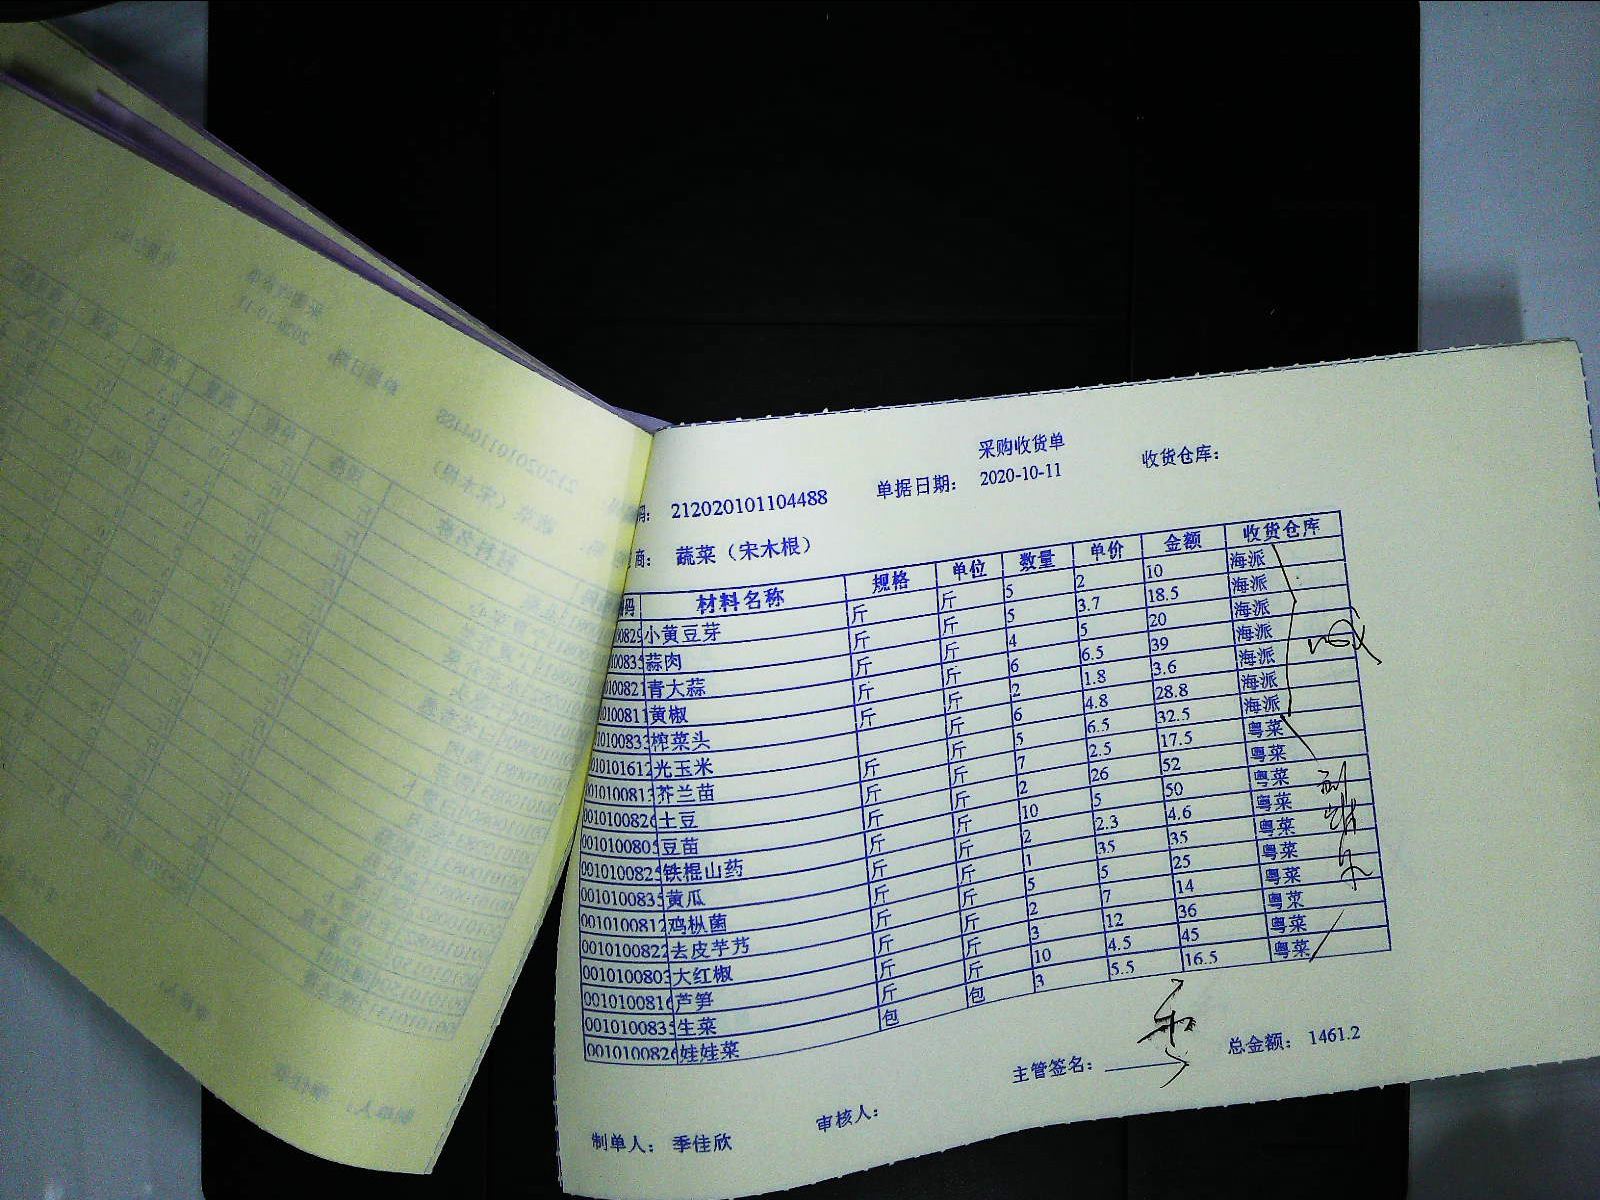 采购收货单
码: 212020101104488 单据日期: 2020-10-11 收货仓库:
商: 蔬菜（宋木根）
码 材料名称 规格 单位 数量 单价 金额 收货仓库
0082 小黄豆芽 斤 斤 5 2 10 海派
10083 蒜肉 斤 斤 5 3.7 18.5 海派
0100821 青大蒜 斤 斤 4 5 20 海派
0100811 黄椒 斤 斤 6 6.5 39 海派
010100833 榨菜头 斤 斤 2 1.8 3.6 海派
010101612 光玉米 斤 6 4.8 28.8 海派
0010100813 芥兰苗 斤 斤 5 6.5 32.5 海派
001010082 土豆 斤 斤 7 2.5 17.5 粤菜
001010080 豆苗 斤 斤 2 26 52 粤菜
001010082 铁棍山药 斤 斤 10 5 50 粤菜
001010083 黄瓜 斤 斤 2 2.3 4.6 粤菜
001010081 鸡枞菌 斤 斤 1 35 35 粤菜
001010082 去皮芋艿 斤 斤 5 5 25 粤菜
001010080 大红椒 斤 斤 2 7 14 粤菜
001010081 芦笋 斤 斤 3 12 36 粤菜
001010083 生菜 斤 斤 10 4.5 45 粤菜
001010082 娃娃菜 包 包 3 5.5 16.5 粤菜
主管签名: 总金额: 1461.2
制单人: 季佳欣 审核人: